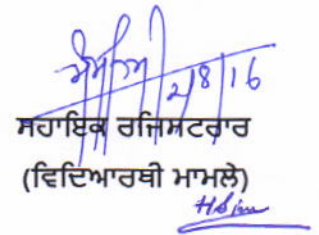 2/8/16
ਸਹਾਇਕ ਰਜਿਸਟਰਾਰ
(ਵਿਦਿਆਰਥੀ ਮਾਮਲੇ)